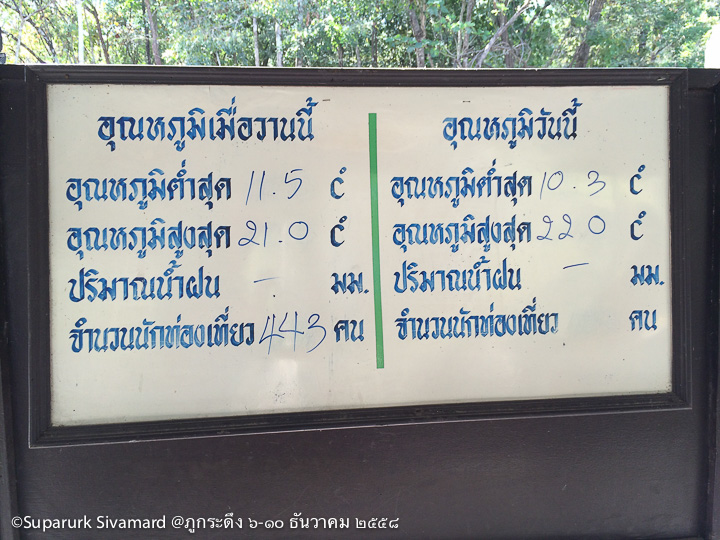 อุณหภูมิเมื่อวานนี้
อุณหภูมิต่ำสุด 11.5 C๐
อุณหภูมิสูงสุด 21.0 C๐
ปริมาณน้ำฝน - มม.
จำนวนนักท่องเที่ยว 443 คน
อุณหภูมิวันนี้
อุณหภูมิต่ำสุด 10.3 C๐
อุณหภูมิสูงสุด 22.0 C๐
ปริมาณน้ำฝน - มม.
จำนวนนักท่องเที่ยว คน
©Suparurk Sivamard @ภูกระดึง ๖-๑๐ ธันวาคม ๒๕๕๘